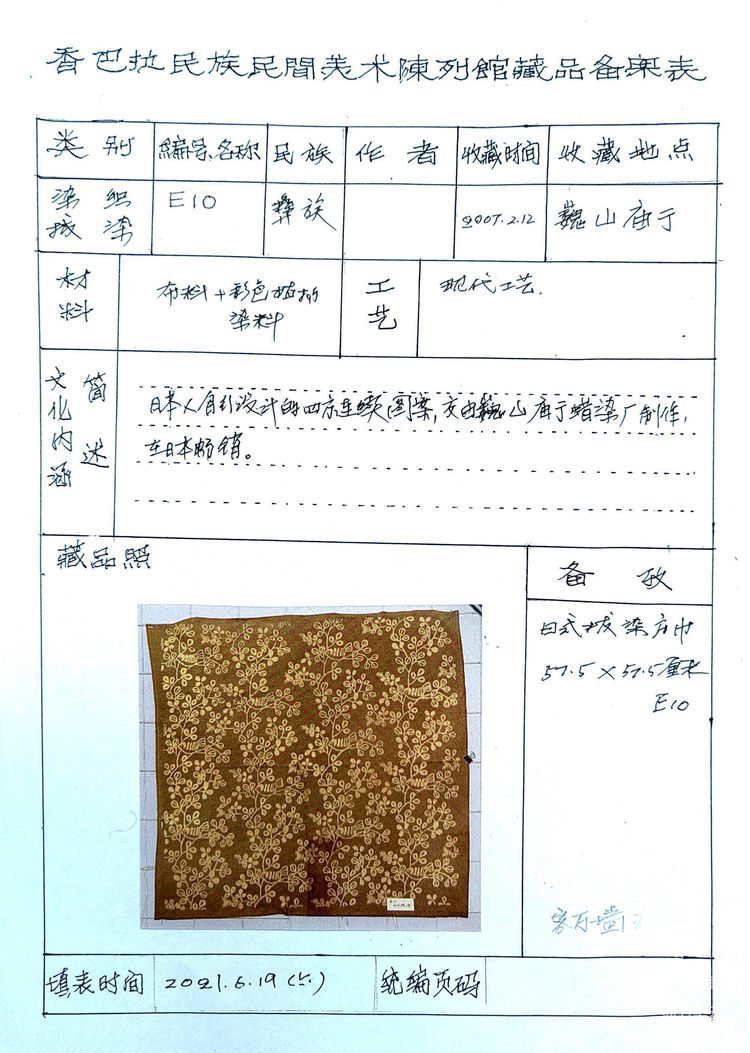 香巴拉民族民間美术陳列館藏品备案表
类别 編号、名称 民族 作者 收藏时间 收藏地点
染织 E10 彝族 2007.2.12 巍山庙于
拔染
材料 布料+彩色
染料
工艺 现代工艺.
文化内涵 简述
日本人自行设计的四方连续图案,交由巍山庙于蜡染厂制作,
在日本畅销。
藏品照
备孜
日式拔染方巾
57.5×57.5厘米
E10
客厅墙1
填表时间 2021.6.19(六) 统编页码